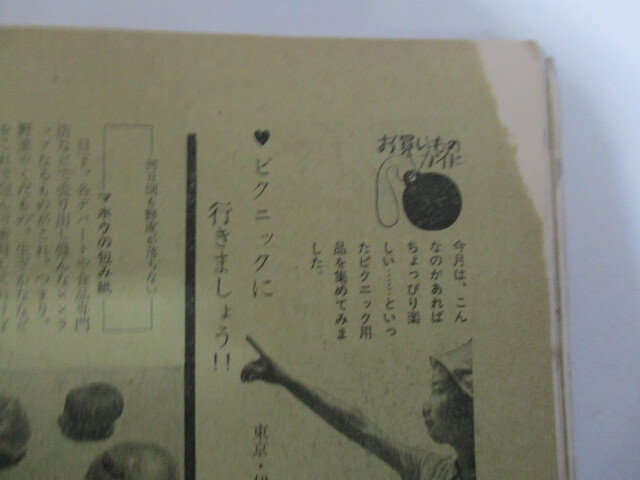 お買いもの
ガイド
今月は、こん
なのがあれば
ちょっぴり楽
しい……といっ
たピクニック用
品を集めてみま
した。
♥ピクニックに
行きましょう!!
東京・
何日間も野菜が落ちない
マホウの包み紙
目下、各デパートや食品専門
店などで売り出し
ップなるものがこれ。つまり、
野菜やくだもの、生ざかななど